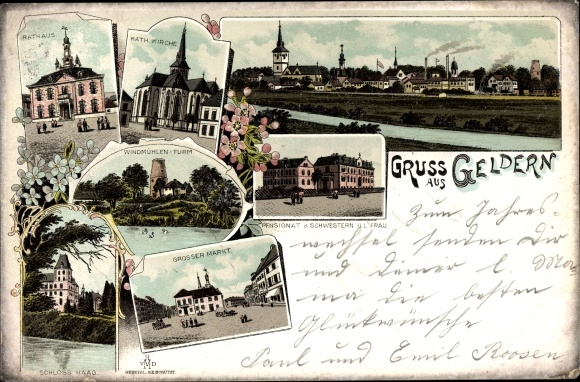 RATHAUS
KATH. KIRCHE
WINDMÜHLEN-TURM
PENSIONAT d. SCHWESTERN U.L. FRAU
GRUSS AUS GELDERN
GROSSER MARKT
SCHLOSS HAAG
GESETZL. GESCHÜTZT
Zum Jahres-
wechsel senden Dir
und deiner l. Ma
ma die besten
Glückwünsche
Paul und Emil Roosen